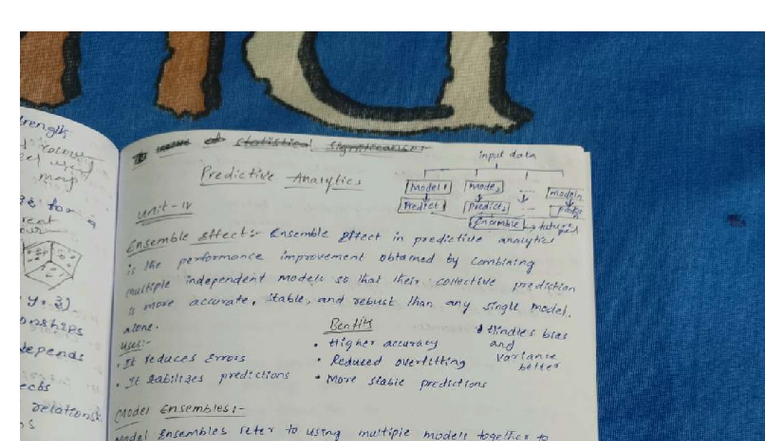 trength
using
map
for a
reat
y, 3)
onships
depends
ects
relations
statistical significance
Predictive Analytics
input data
Model 1 Model 2 ---- Model n
Predict 1 Predict 2
Ensemble
Unit-IV
Ensemble effect:- Ensemble effect in predictive analytics
is the performance improvement obtained by combining
multiple independent models so that their collective prediction
is more accurate, stable, and robust than any single model.
alone.
Uses:-
• It reduces Errors
• It stabilizes predictions
Benfits
• Higher accuracy
• Reduced overfitting
• More stable predictions
Hindles bias
and
variance
better
Model Ensembles:-
Model Ensembles refer to using multiple models together to